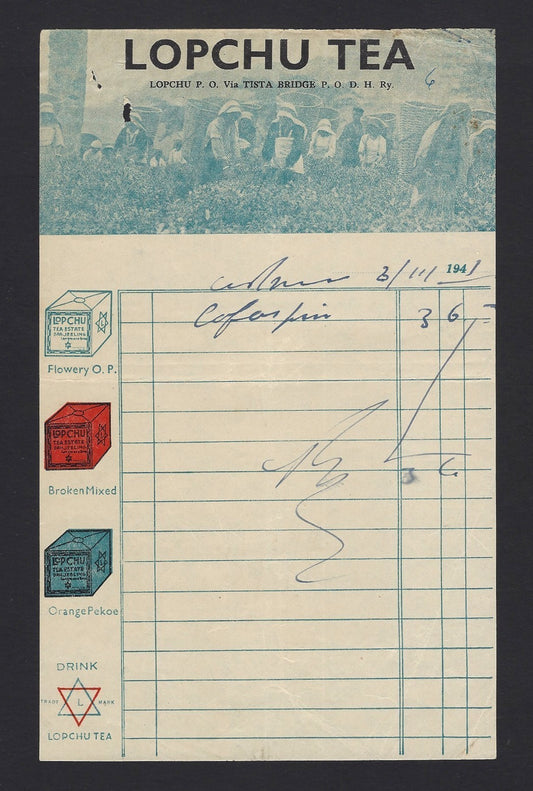 LOPCHU TEA
LOPCHU P. O. Via TISTA BRIDGE P. O. D. H. Ry.
6
3/III 1941
3 6
LOPCHU
TEA ESTATE
DARJEELING
Flowery O. P.
LOPCHU
TEA ESTATE
DARJEELING
Broken Mixed
3 6
LOPCHU
TEA ESTATE
DARJEELING
Orange Pekoe
DRINK
TRADE L MARK
LOPCHU TEA